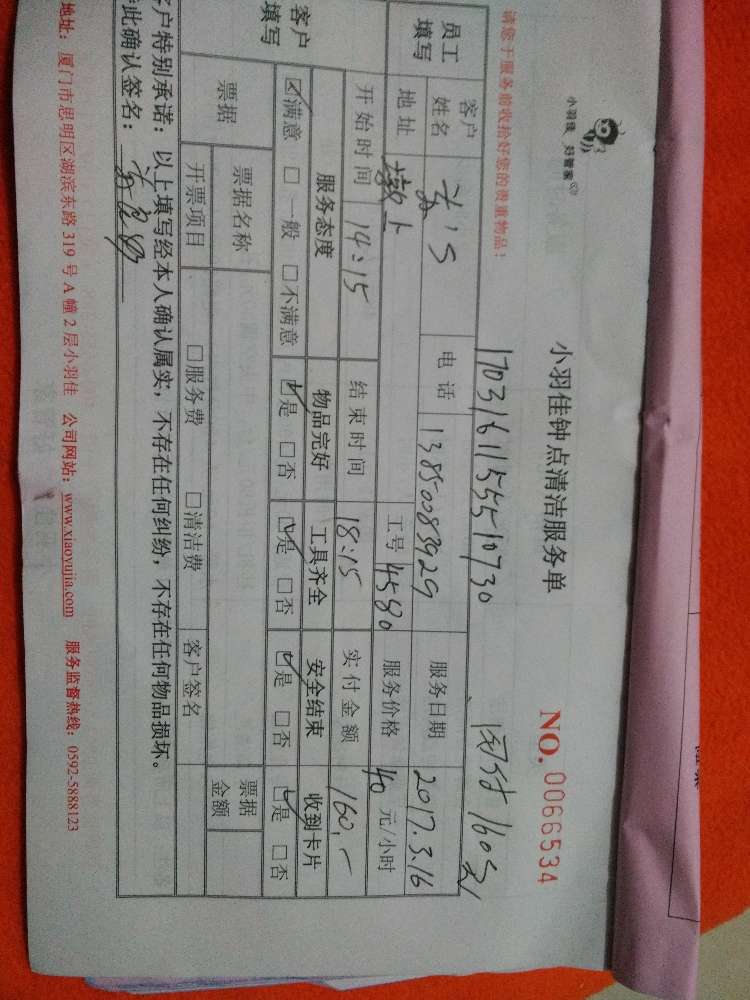 小羽佳 好管家
小羽佳钟点清洁服务单
NO. 0066534
请您于服务前收拾好您的贵重物品!
170316115551 0730
160元
员工填写 客户姓名 电话 13850083929 服务日期 2017.3.16
地址 工号 4580 服务价格 40 元/小时
客户填写 开始时间 14:15 结束时间 18:15 实付金额 160.-
服务态度 物品完好 工具齐全 安全结束 收到卡片
☑满意 □一般 □不满意 ☑是 □否 ☑是 □否 ☑是 □否 ☑是 □否
票据 票据名称 票据金额
开票项目 □服务费 □清洁费 客户签名
客户特别承诺:以上填写经本人确认属实,不存在任何纠纷,不存在任何物品损坏。
特此确认签名:
地址:厦门市思明区湖滨东路319号A幢2层小羽佳 公司网站:www.xiaoyujia.com 服务监督热线:0592-5888123